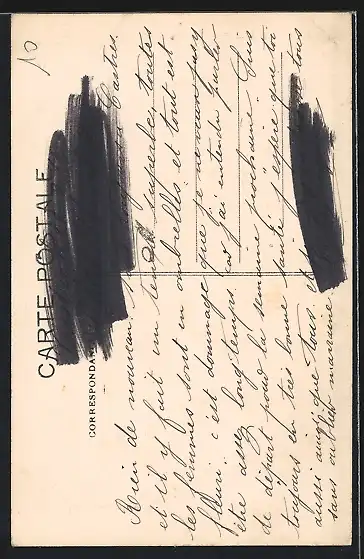 10
CARTE POSTALE
CORRESPONDAN
Rien de nouveau Castres.
et il y fait un temps superbe, toutes
les femmes sont en ombrelles et tout est
fleuri. c'est dommage que je ne
être assez longtemps. car j'ai entendu parler
de départ pour la semaine prochaine. Suis
toujours en très bonne santé, j'espère que toi
aussi ainsi que tous. et tous
sans oublier maman.